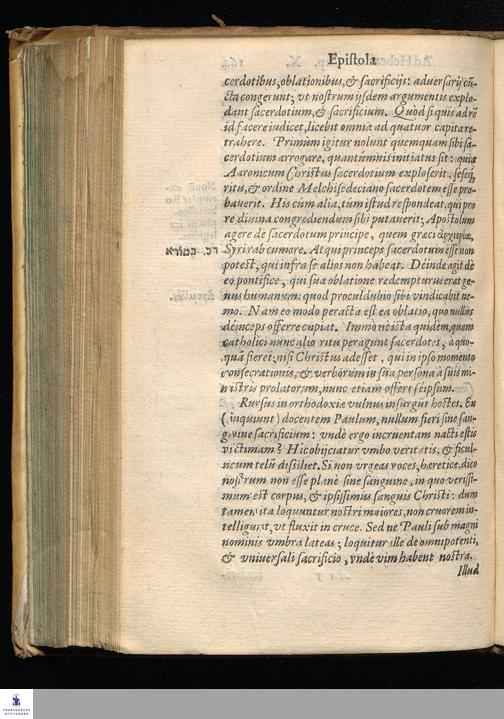 Epistola
cerdotibus, oblationibus, & sacrificijs: aduersarij cũ-
cta congerunt; vt nostrum ijsdem argumentis explo-
dant sacerdotium, & sacrificium. Quòd si quis ad rẽ
id facere iudicet, licebit omnia ad quatuor capita re-
trahere. Primùm igitur nolunt quemquam sibi sa-
cerdotium arrogare, quantúmuis initiatus sit: quia
Aaronicum Christus sacerdotium exploserit, seseq́;
ritu, & ordine Melchisedeciano sacerdotem esse pro-
bauerit. His cùm alia, tùm istud respondeat, qui pro
re diuina congrediendum sibi putauerit; Apostolum
agere de sacerdotum principe, quem græci ἀρχιερέα,
Syri rab cumore. At qui princeps sacerdotum esse non
רב. כמורא
potest, qui infra se alios non habeat. Deinde agit de
eo pontifice, qui sua oblatione redempturus erat ge-
nus humanum: quod proculdubio sibi vindicabit ne-
mo. Nam eo modo peracta est ea oblatio, quo nullus
deinceps offerre cupiat. Immo ne ista quidem, quam
catholici nunc alio ritu peragunt sacerdotes, à quo-
quã fieret; nisi Christus adesset, qui in ipso momento
consecrationis, & verborum in sua persona à suis mi-
nistris prolatorum, nunc etiam offert seipsum.
Rursus in orthodoxiæ vulnus insurgũt hostes. En
(inquiunt) docentem Paulum, nullum fieri sine san-
guine sacrificium: vndè ergo incruentam nacti estis
victimam? Hic obijciatur vmbo veritatis, & ficul-
neum telũ dissiliet. Si non vrgeas voces, hæretice, dico
nostrum non esse planè sine sanguine, in quo verissi-
mum est corpus, & ipsissimus sanguis Christi: dum
tamen ita loquuntur nostri maiores, non cruorem in-
telligunt, vt fluxit in cruce. Sed ne Pauli sub magni
nominis vmbra lateas; loquitur ille de omnipotenti,
& vniuersali sacrificio, vndè vim habent nostra.
Illud